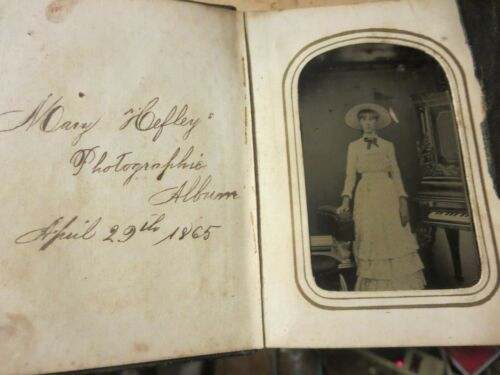 Mary Hefley's
Photographic
Album
April 29th 1865